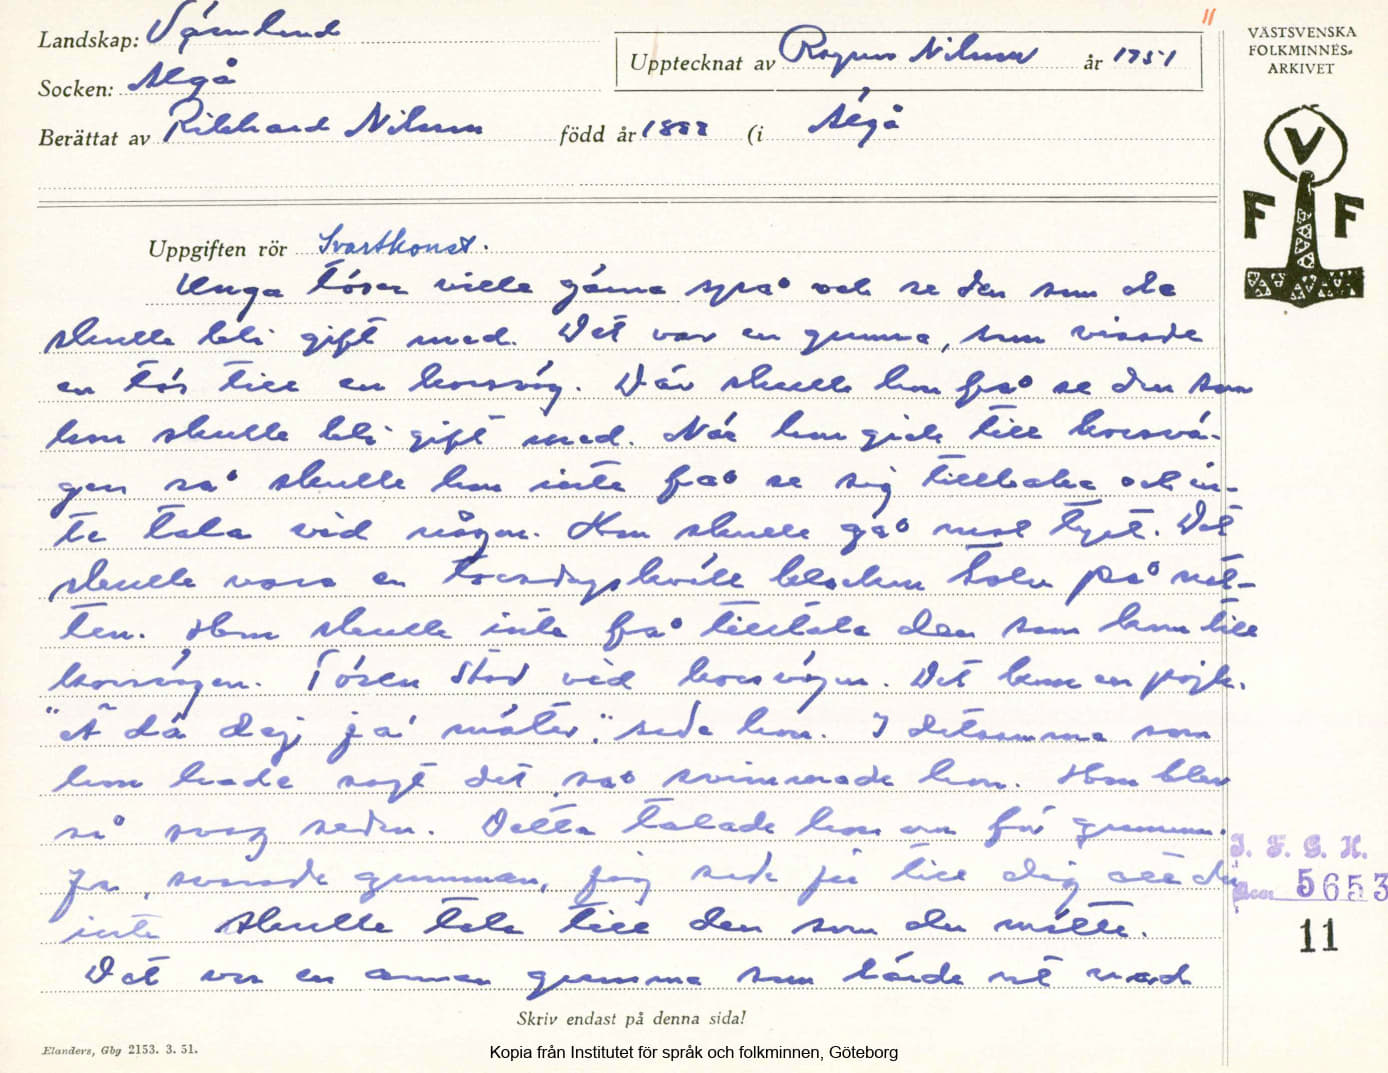 Landskap: Värmland
Upptecknat av Ragnar Nilsson år 1951
VÄSTSVENSKA
FOLKMINNES-
ARKIVET
Socken: Älgå
Berättat av Rikhard Nilsson född år 1888 (i Älgå
V
F F
Uppgiften rör Svartkonst.
Unga töser ville gärna spå och se den som de
skulle bli gift med. Det var en gumma, som visade
en tös till en korsväg. Där skulle hon få se den som
hon skulle bli gift med. När hon gick till korsvä-
gen så skulle hon inte få se sig tillbaka och in-
te tala vid någon. Hon skulle gå mol tyst. Det
skulle vara en torsdagskväll klockan tolv på nat-
ten. Hon skulle inte få tilltala den som kom till
korsvägen. Tösen stod vid korsvägen. Det kom en pojk.
"Ä dä dej ja möter", sade hon. I detsamma som
hon hade sagt det så svimmade hon. Hon blev
så svag sedan. Detta talade hon om för gumman.
Ja, svarade gumman, jag sade ju till dig att du
inte skulle tala till den som du mötte.
Det var en annan gumma som lärde ut vad
I. F. G. H.
5653
11
Skriv endast på denna sida!
Elanders, Gbg 2153. 3. 51.
Kopia från Institutet för språk och folkminnen, Göteborg